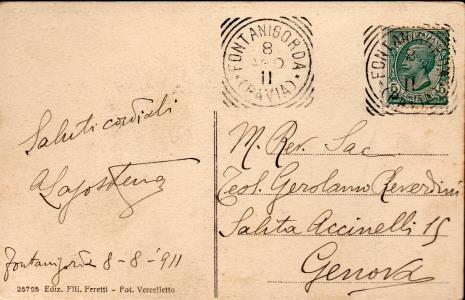 FONTANIGORDA
8
AGO
11
(PAVIA)
FONTAN
11
Saluti cordiali
Fontanigorda 8-8-911
25795 Ediz. Flli. Feretti - Fot. Vercelletto
M. Rev. Sac.
Teol. Gerolamo Reverdini
Salita Accinelli 15
Genova